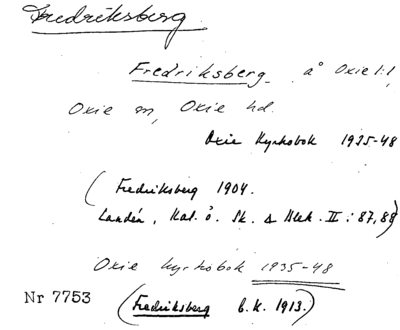 Fredriksberg
Fredriksberg å Oxie 1:1,
Oxie sn, Oxie hd.
Oxie Kyrkobok 1935-48
(Fredriksberg 1904.
Landén, Kal. ö. Sk. II: 87, 88)
Oxie kyrkobok 1935-48
Nr 7753 (Fredriksberg E.K. 1913.)